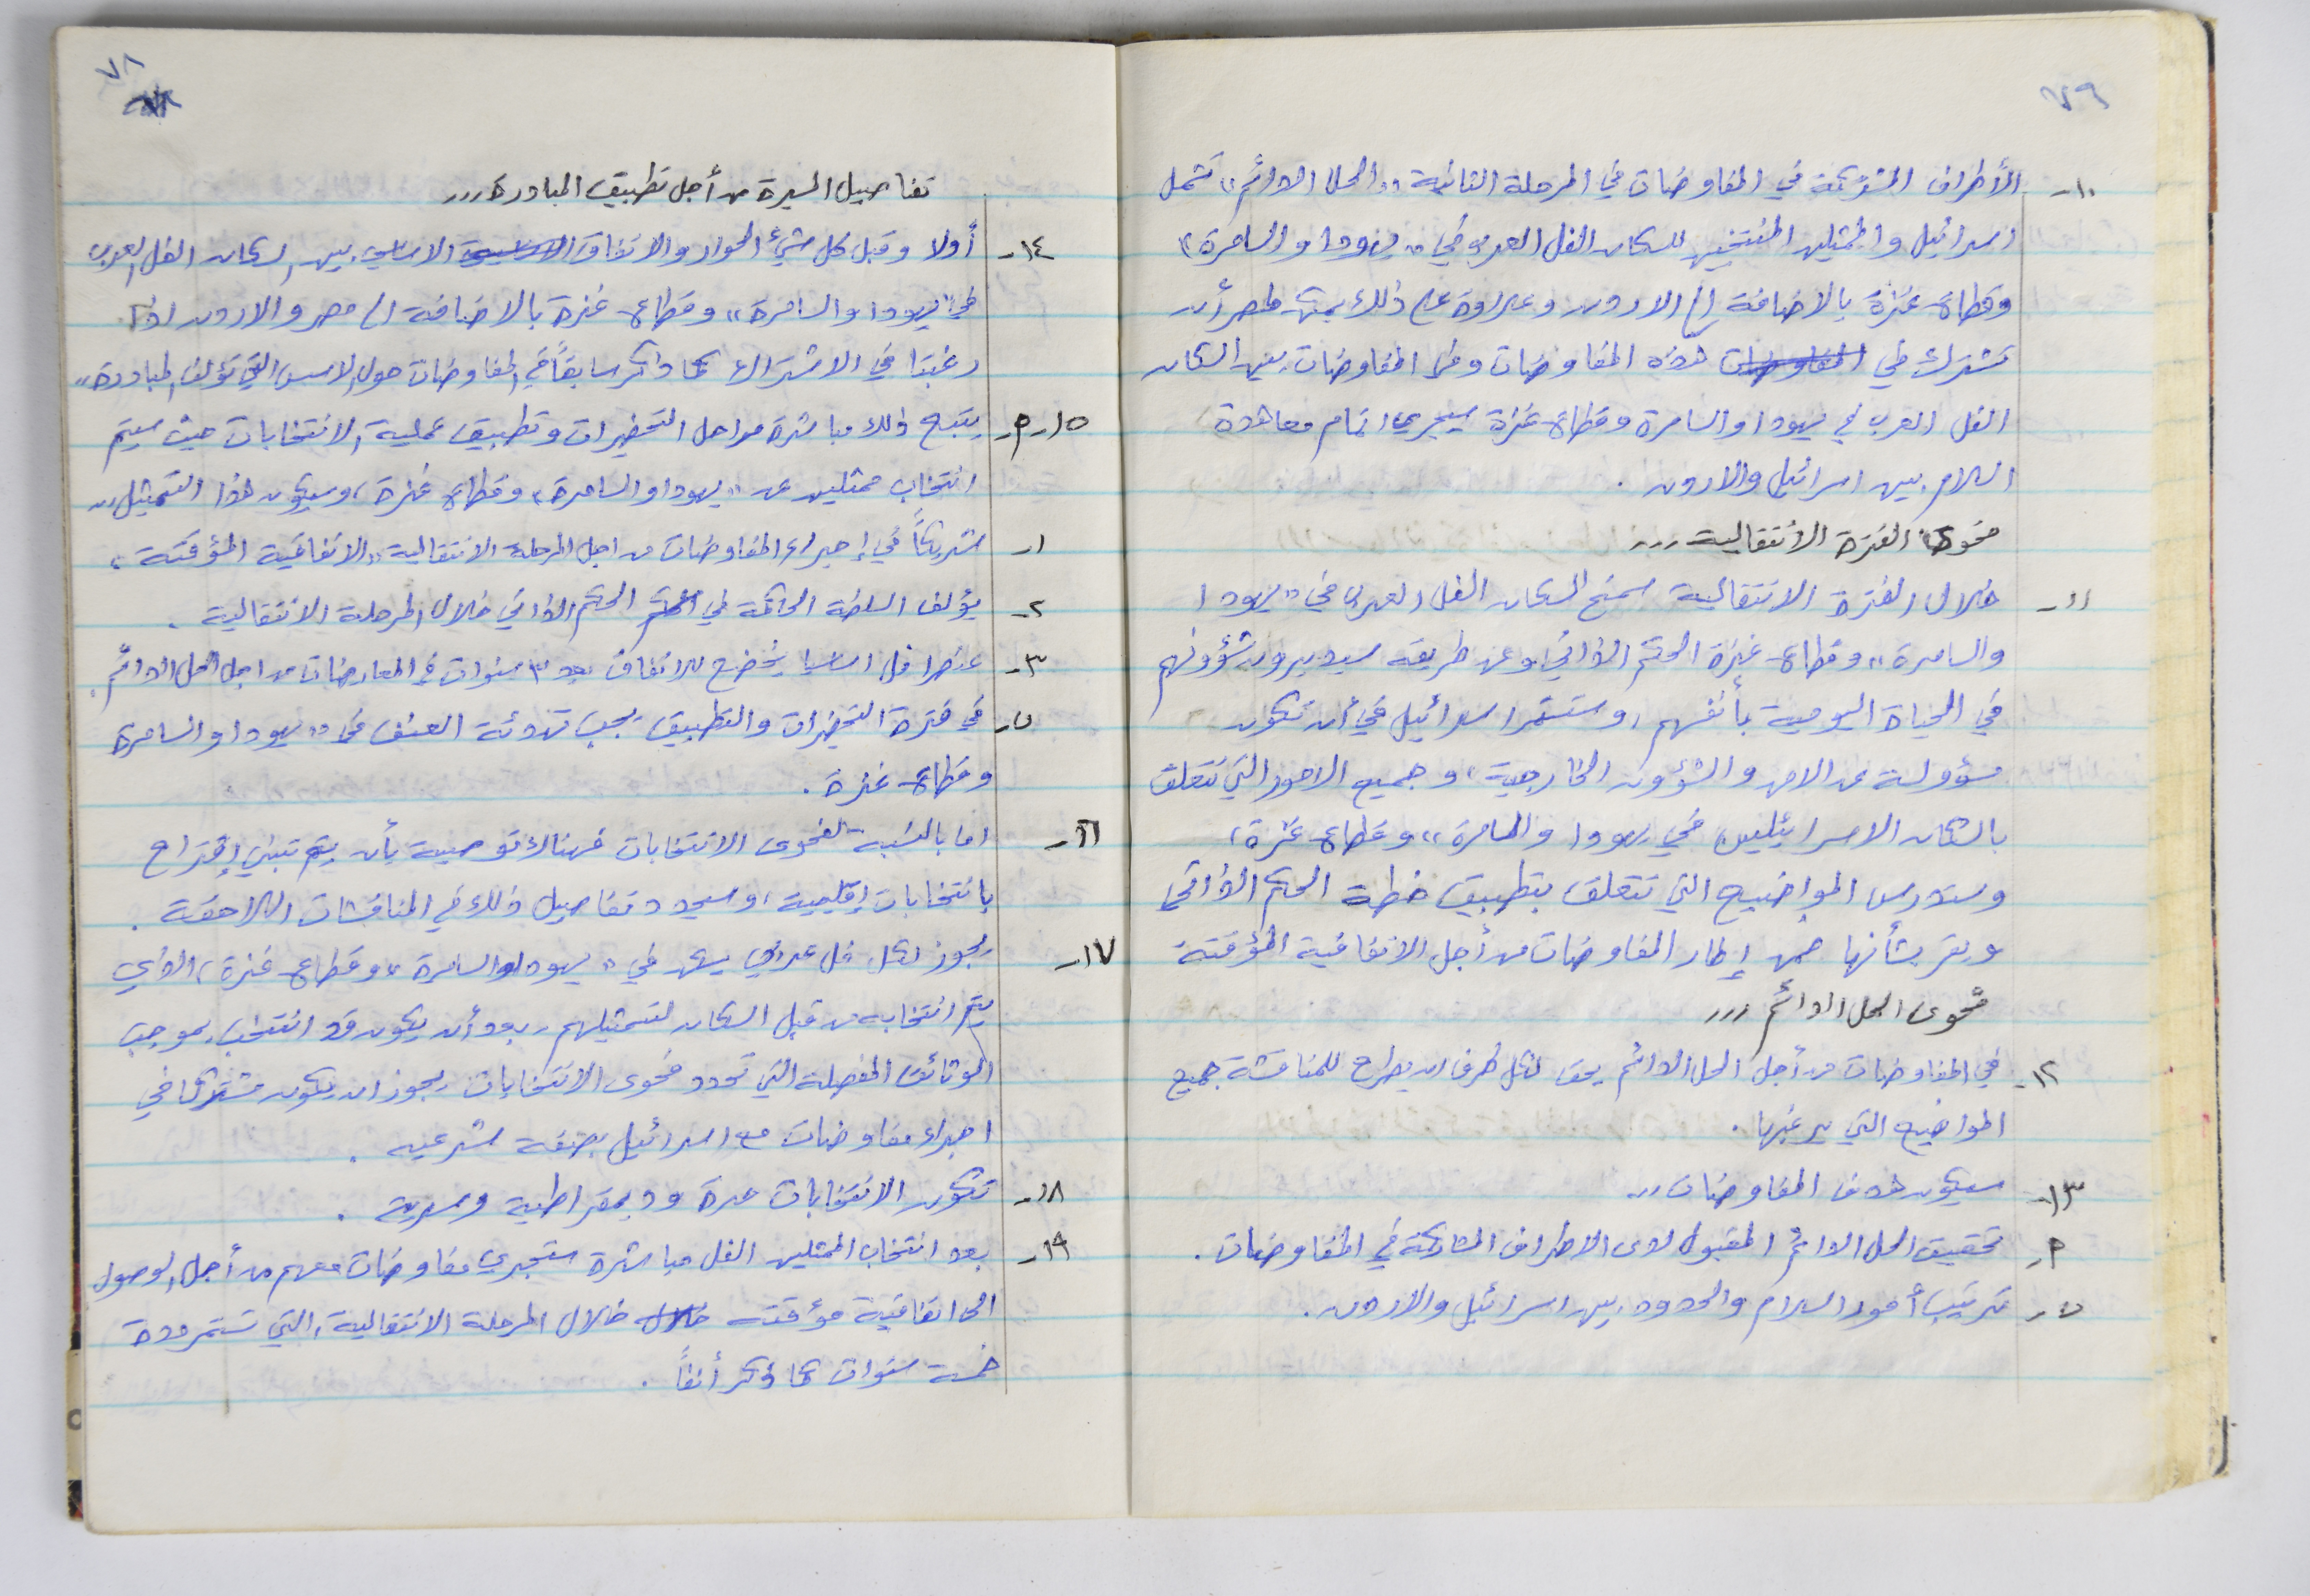 ٧٦
١٠- الأطراف المشتركة في المفاوضات في المرحلة الثانية "الحل الدائم" تشمل
اسرائيل والممثلين المنتخبين للسكان الفل العرب في "يهودا والسامرة"
وقطاع غزة بالاضافة الى الاردن وعلاوة على ذلك يمكن لمصر أن
تشترك في المفاوضات هذه المفاوضات وفي المفاوضات بين السكان
الفل العرب في يهودا والسامرة وقطاع غزة سيجري اتمام معاهدة
السلام بين اسرائيل والاردن .
فحوى الفترة الانتقالية ...
١١- خلال الفترة الانتقالية سمنح السكان الفل العرب في "يهودا
والسامرة" وقطاع غزة الحكم الذاتي وعن طريقه سيديرون شؤونهم
في الحياة اليومية بأنفسهم، وستستمر اسرائيل في أن تكون
مسؤولة عن الامن والشؤون الخارجية، وجميع الامور التي تتعلق
بالسكان الاسرائيليين في يهودا والسامرة" وقطاع غزة،
وستدرس المواضيع التي تتعلق بتطبيق خطة الحكم الذاتي
ويقر بشأنها ضمن إطار المفاوضات من أجل الاتفاقية المؤقتة
فحوى الحل الدائم ...
١٢- في المفاوضات من أجل الحل الدائم يحق لكل طرف ان يطرح للمناقشة جميع
المواضيع التي يرغبها .
١٣- سيكون هدف المفاوضات ..
م- تحقيق الحل الدائم المقبول لدى الاطراف المشاركة في المفاوضات .
ب- ترتيب أمور السلام والحدود بين اسرائيل والاردن .
٧٨
تفاصيل المسيرة من أجل تطبيق المبادرة ...
١٤- أولا وقبل كل شيء الحوار والاتفاق الاساسي بين السكان الفل العرب
في "يهودا والسامرة" وقطاع غزة بالاضافة الى مصر والاردن اذا
رغبتا في الاشتراك كما ذكر سابقاً في المفاوضات حول الاسس التي تؤلف المبادرة"
١٥- م- يتبع ذلك مباشرة مراحل التحضيرات وتطبيق عملية الانتخابات حيث سيتم
انتخاب ممثلين عن "يهودا والسامرة" وقطاع غزة، وسيكون هذا التمثيل ..
١- شريكاً في إجراء المفاوضات من اجل المرحلة الانتقالية "الاتفاقية المؤقتة"
٢- يؤلف السلطة الحاكمة في الحكم الحكم الذاتي خلال المرحلة الانتقالية .
٣- عنصرا فل اساسيا يخضع للاتفاق بعد ٣ سنوات في المعارضات من اجل الحل الدائم.
ب- في فترة التحضيرات والتطبيق يجب تهدئة العنف في "يهودا والسامرة
وقطاع غزة .
١٦- اما بالنسبة لفحوى الانتخابات فهنالك توصية بأن يتم تبني إقتراح
بانتخابات إقليمية، وسيحدد تفاصيل ذلك في المناقشات اللاحقة .
١٧- يجوز لكل فل عربي يسكن في "يهودا والسامرة" وقطاع غزة، الذي
يتم انتخابه من قبل السكان لتمثيلهم، بعد أن يكون قد انتخب بموجب
الوثائق المفصلة التي تحدد فحوى الانتخابات يجوز ان يكون مشتركا في
اجراء مفاوضات مع اسرائيل بصفة شرعيه .
١٨- تتكون الانتخابات حرة وديمقراطية وسرية .
١٩- بعد انتخاب الممثلين الفل مباشرة ستجري مفاوضات معهم من أجل الوصول
الى اتفاقية مؤقتة خلال خلال المرحلة الانتقالية، التي تستمر مدة
خمسة سنوات كما ذكر أنفاً .